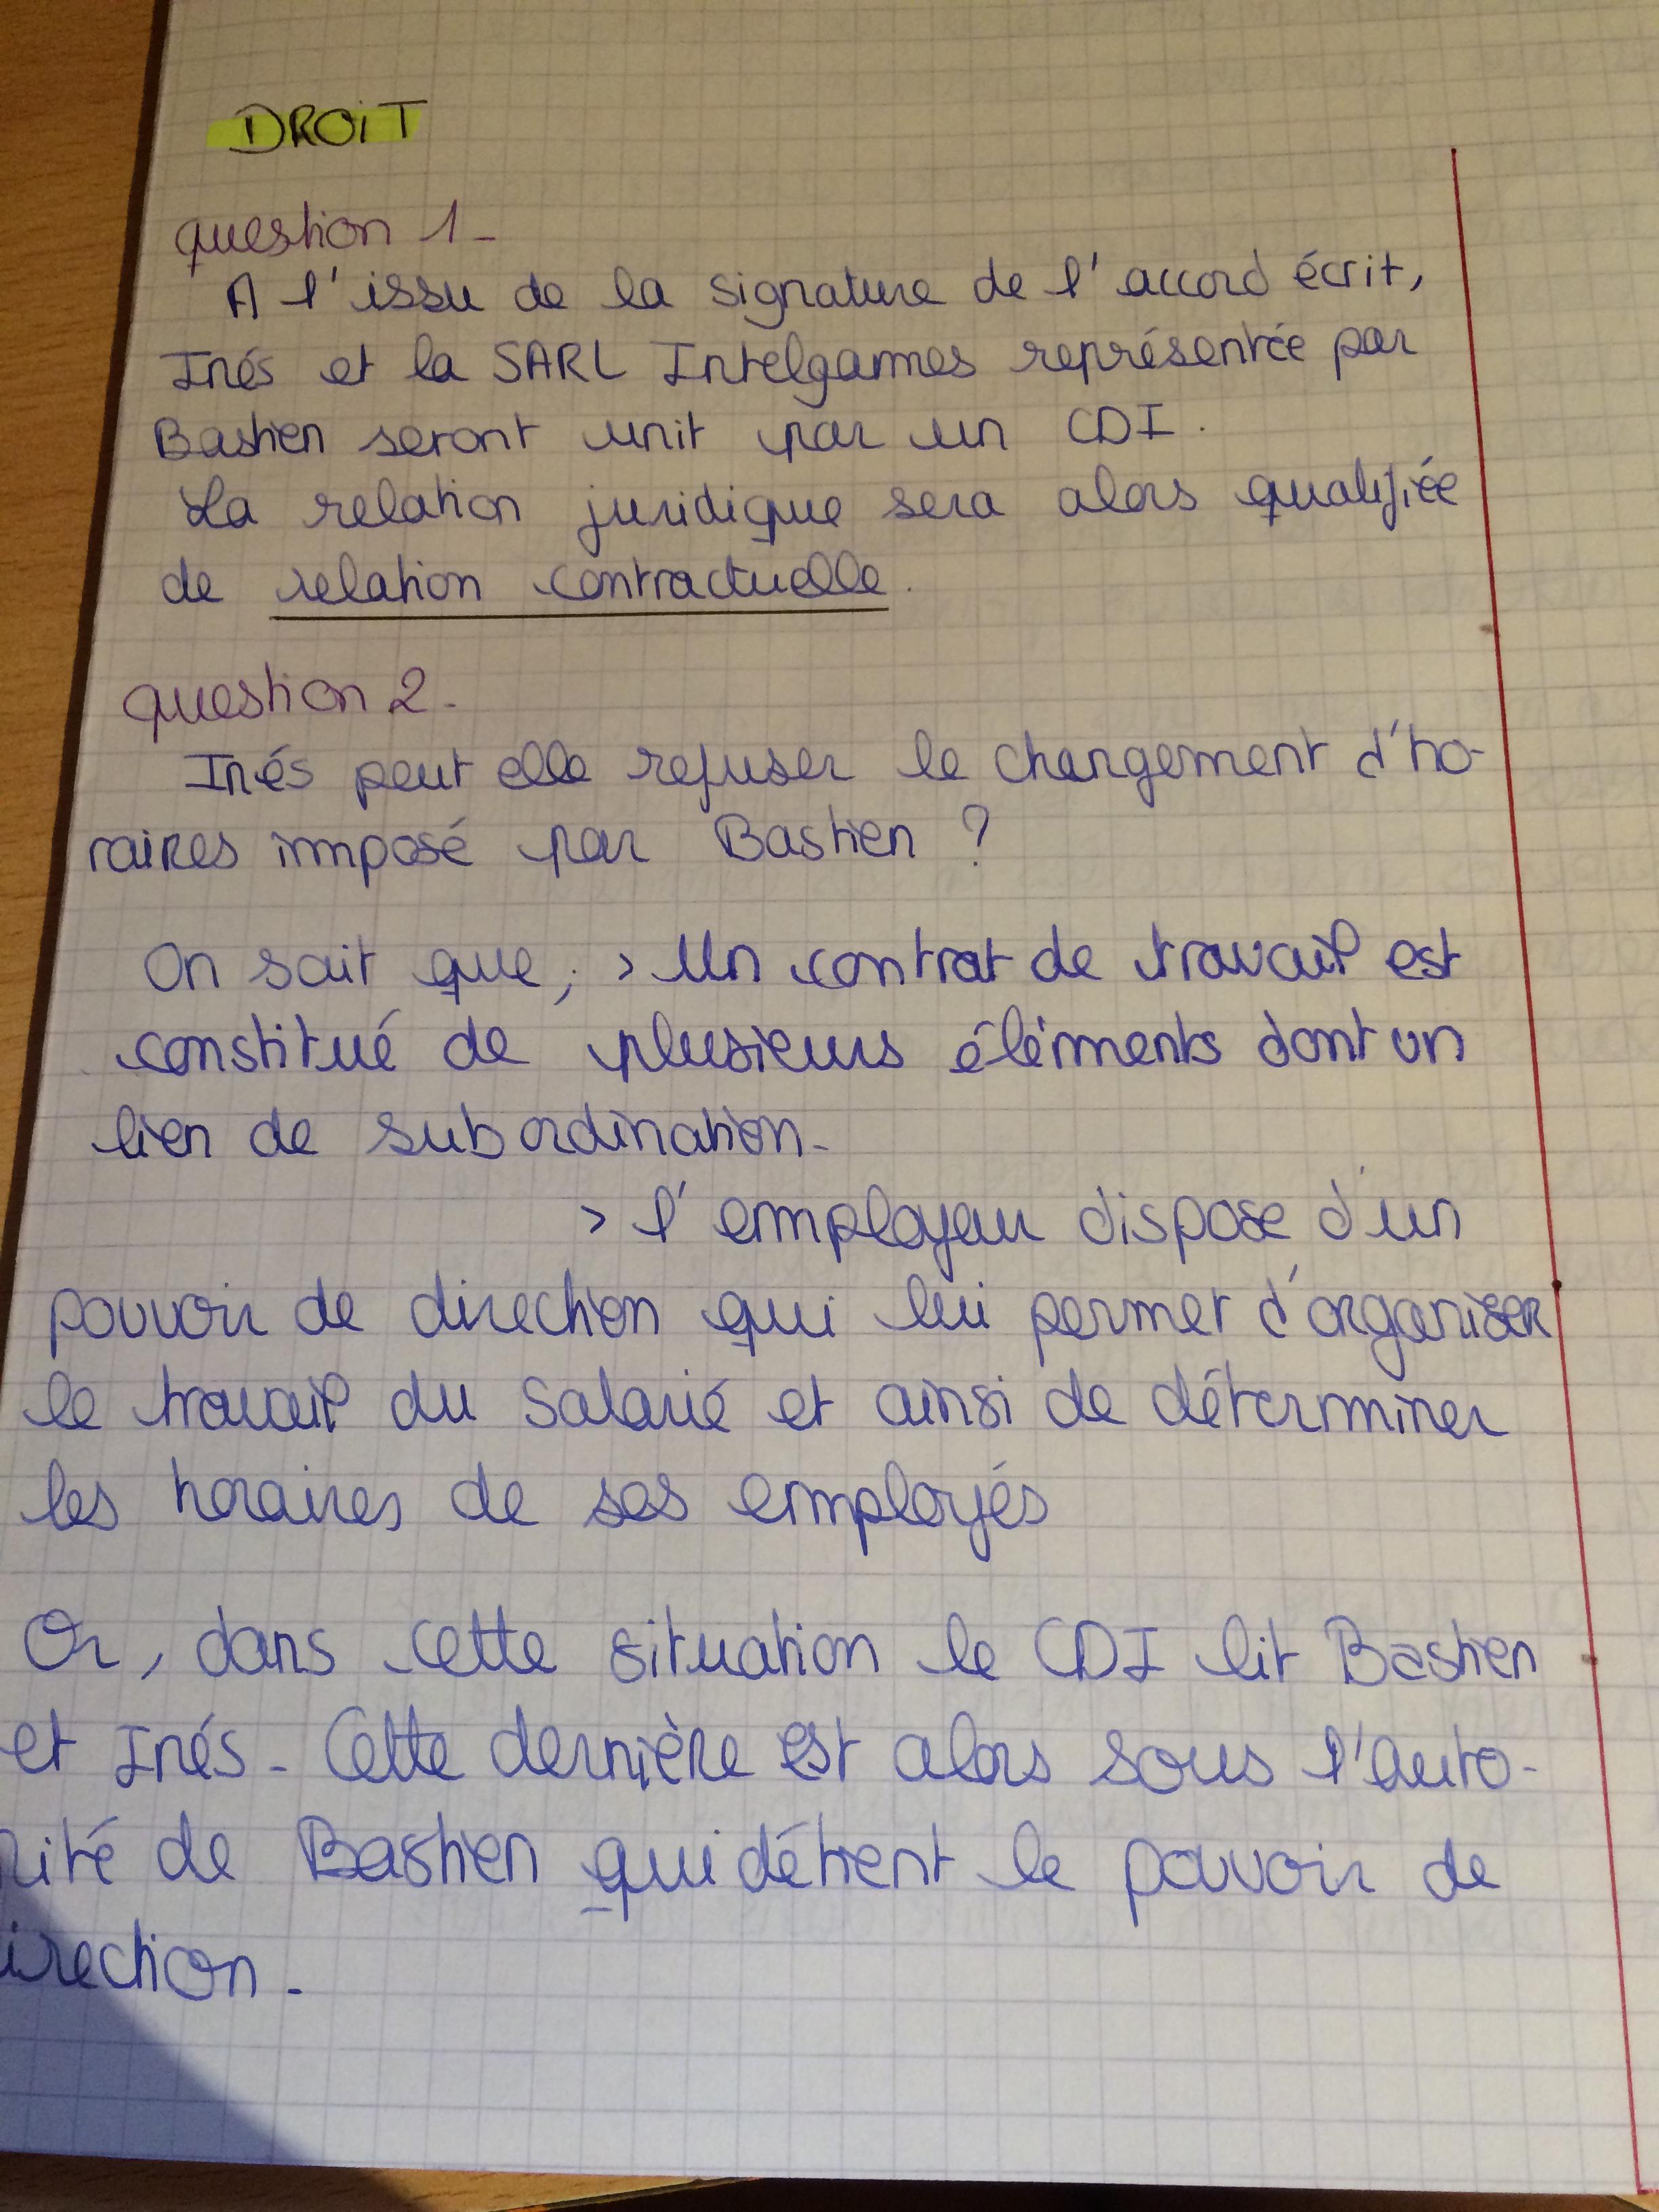 DROIT
question 1-
A l'issu de la signature de l'accord écrit,
Inés et la SARL Intelgames représentée par
Bastien seront unit par un CDI.
La relation juridique sera alors qualifiée
de relation contractuelle.
question 2-
Inés peut elle refuser le changement d'ho-
raires imposé par Bastien ?
On sait que, > Un contrat de travail est
constitué de plusieurs éléments dont un
lien de subordination-
> l'employeur dispose d'un
pouvoir de direction qui lui permet d'organiser
le travail du salarié et ainsi de déterminer
les horaires de ses employés
Or, dans cette situation le CDI lit Bastien
et Inés- Cette dernière est alors sous l'auto-
rité de Bastien qui détient le pouvoir de
irection-